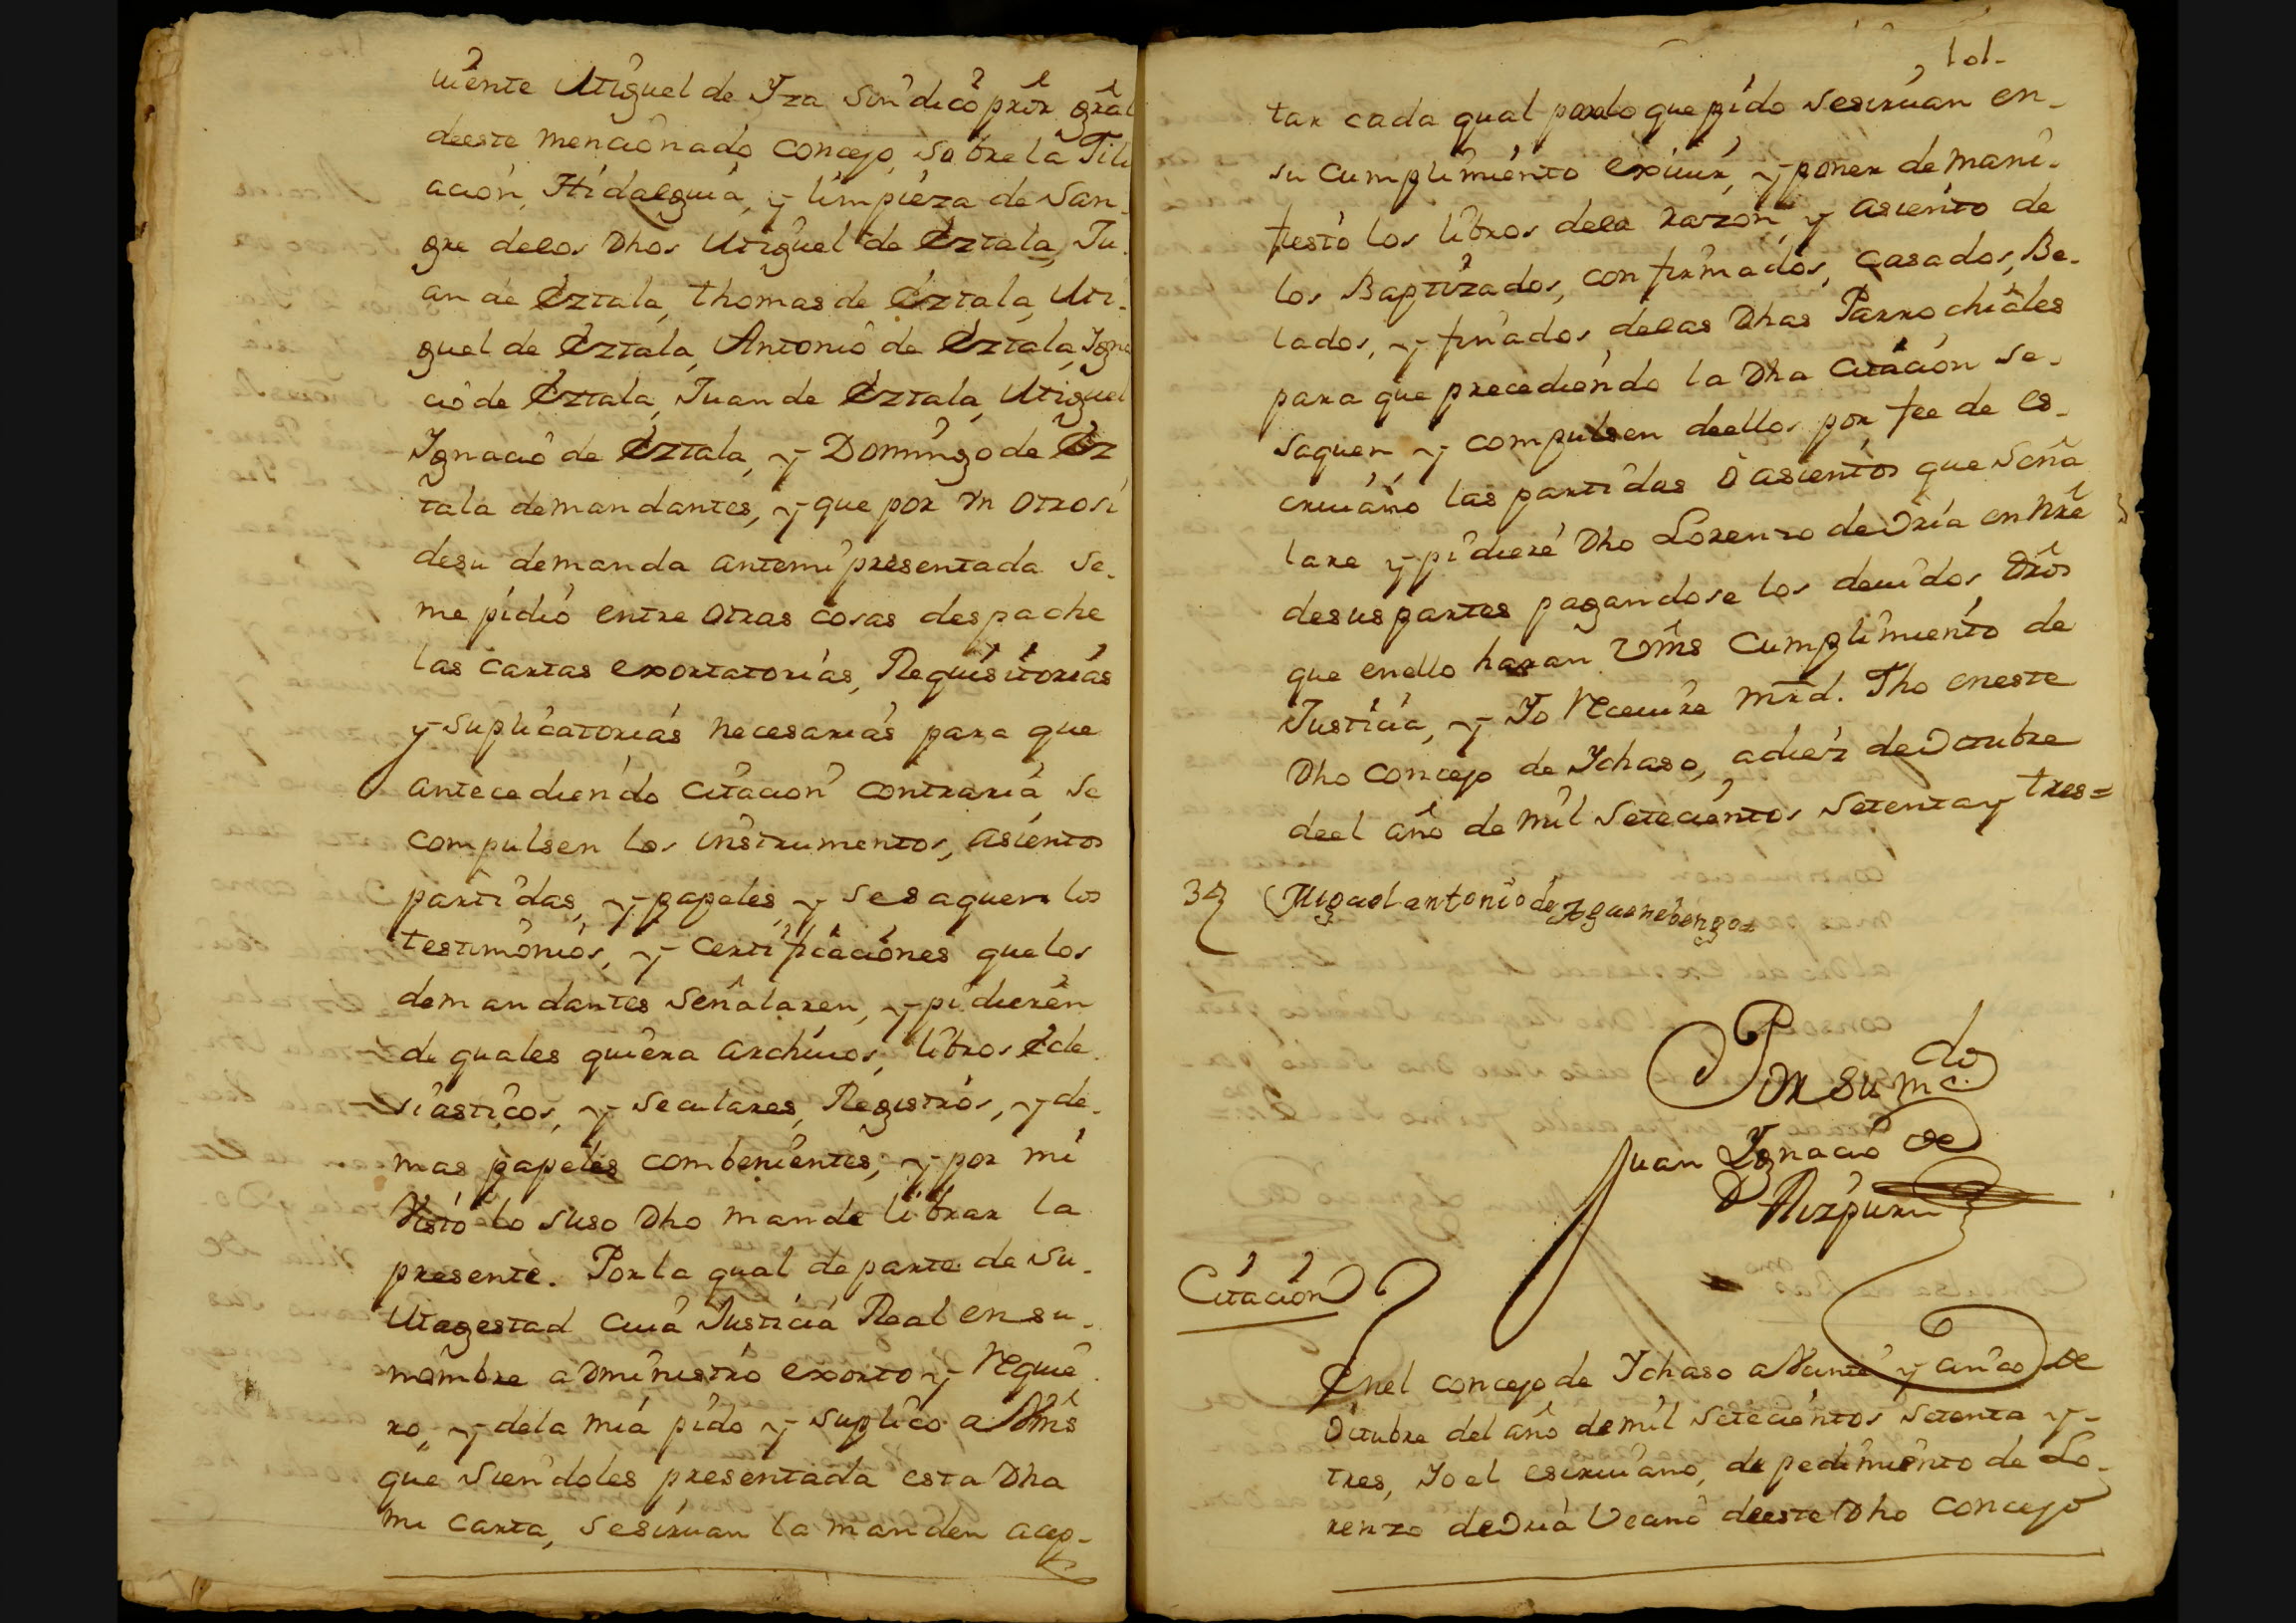 uiente Miguel de Yza Sindico prõr grãl
deeste mencionado concejo, sobre la Fili
acion, Hidalguia, y limpieza de San-
gre delos Dhos Miguel de Eztala, Ju-
an de Eztala, thomas de Eztala, Mi-
guel de Eztala, Antonio de Eztala, Igna
cio de Eztala, Juan de Eztala, Miguel
Ignacio de Eztala, y Domingo de Ez
tala demandantes, y que por un otrosi
desu demanda antemi presentada se-
me pidió entre otras cosas despache
las cartas exortatorias, Requisitorias
y suplicatorias necesarias para que
antecediendo citacion contraria se
compulsen los instrumentos, asientos
partidas, y papeles, y se saquen los
testimonios, y certificaciones que los
demandantes señalaren, y pidieren
de quales quiera archiuos, libros Ecle-
siasticos, y seculares, Registros, y de-
mas papeles combenientes, y por mi
Visto lo suso Dho mande librar la
presente. Por la qual de parte de su-
Magestad cuia Justicia Real en su-
nombre administro exorto y Requie
ro, y dela mia pido y suplico a Vms
que siendoles presentada esta Dha
mi carta, se siruan la manden acep-
101-
tar cada qual por lo que pido se siruan en-
su cumplimiento exiuir, y poner de mani-
fiesto los libros dela razon, y asiento de
los Baptizados, confirmados, casados, Be-
lados, y finados delas Dhas Parrochiales
para que precediendo la Dha Citacion se-
saquen y compulsen deellos por fee de es-
criuano las partidas ò asientos que Seña
lare y pidiere Dho Lorenzo de Oria en Nre
desus partes pagandose los deuidos Dros
que en ello haran Vms Cumplimiento de
Justicia, y Yo Receuire Mrd. Fho eneste
Dho concejo de Ychaso, adiez de Octubre
deel año de mil setecientos setenta y tres=
Miguel antonio de Aguanebengoa
Por su mdo
Juan Ygnacio de
Aizpuru
Citacion
Enel concejo de Ychaso a Veinte y cinco de
Octubre del año de mil setecientos setenta y-
tres, Yo el escriuano, de pedimiento de Lo-
renzo de Oria Vecino deeste Dho concejo